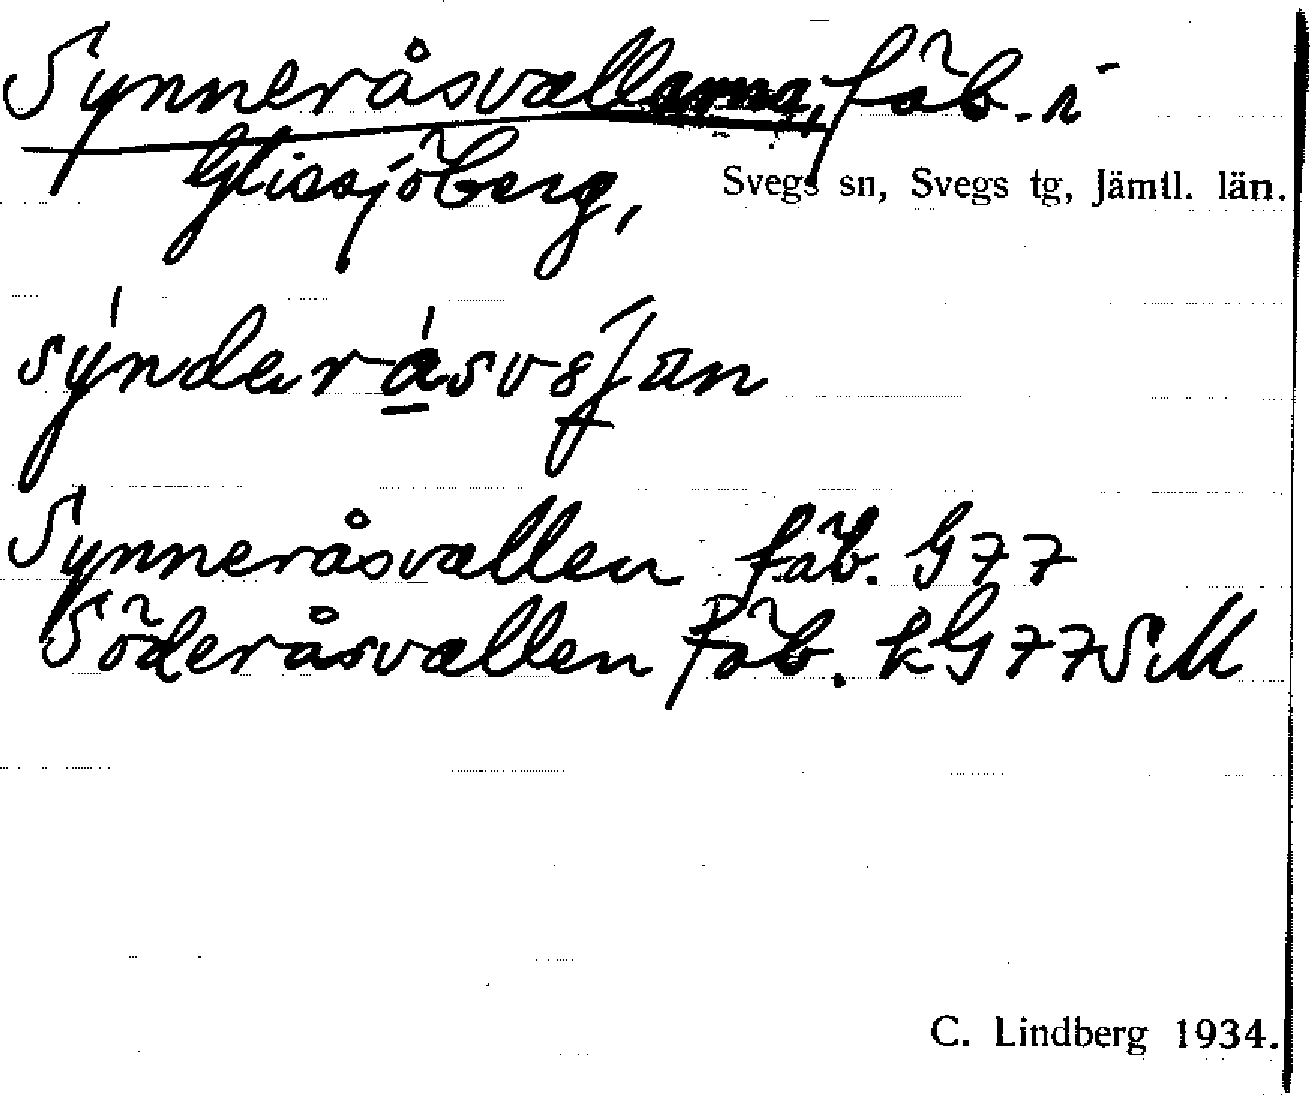 Synneråsvallarna, fäb. i
Glissjöberg, Svegs sn, Svegs tg, Jämtl. län.
Synneråsvallen fäb. G77
Söderåsvallen fäb. kG77SM
C. Lindberg 1934.